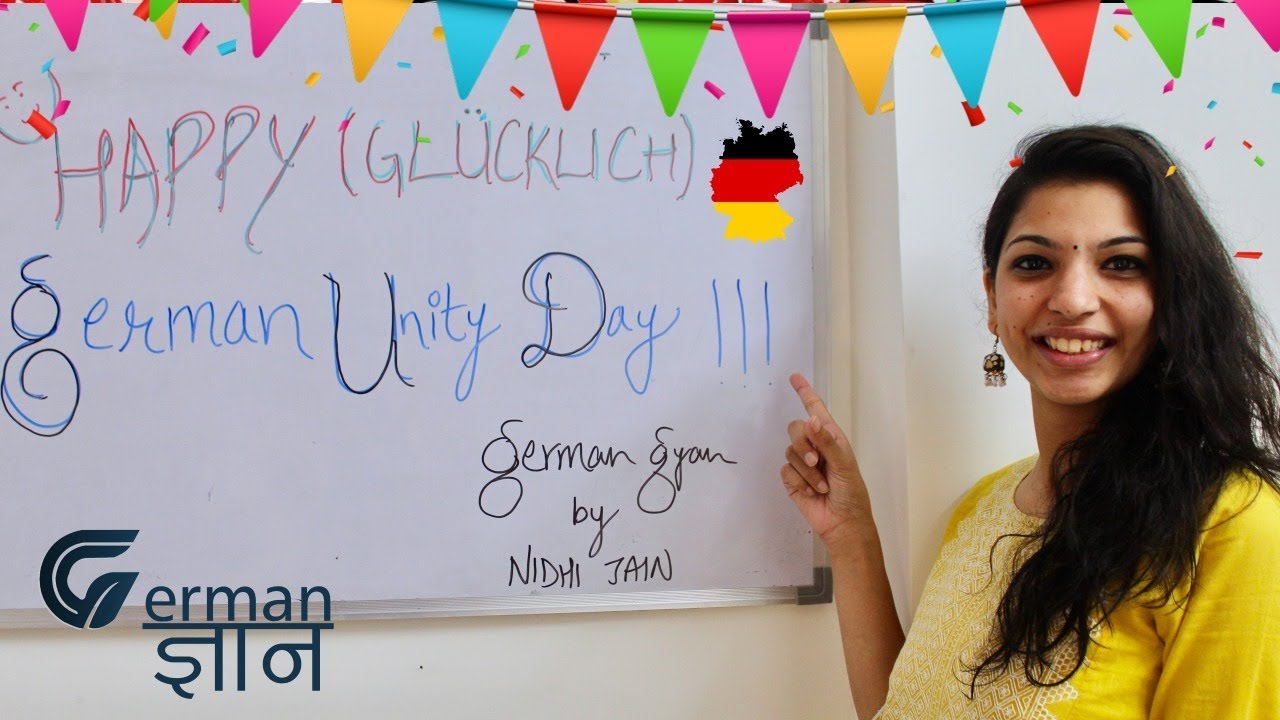 HAPPY (GLÜCKLICH)
German Unity Day !!!
German gyan
by
NIDHI JAIN
German
ज्ञान